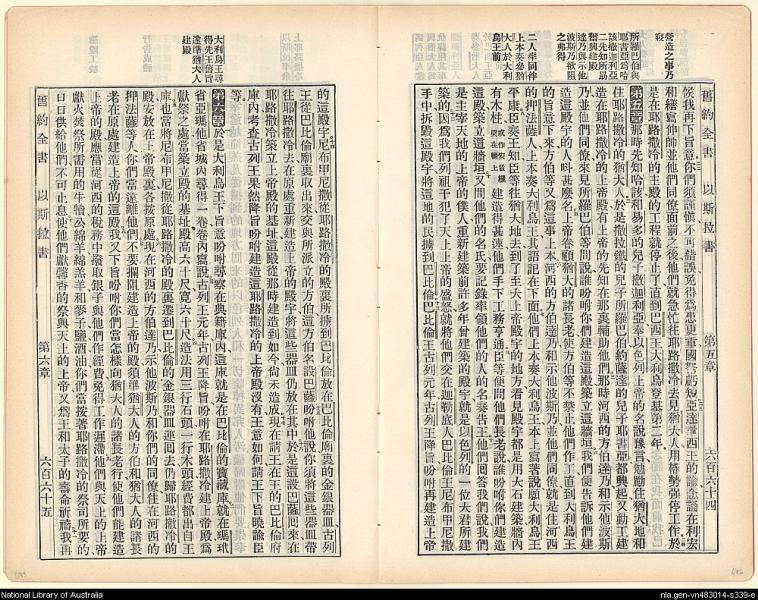 營造之事乃
寢
所羅巴伯與
耶書亞為哈
該撒迦利亞
二先知所勗
奮興建殿
達乃與示他
波斯乃欲阻
之弗得
二人率同伴
上本奏參猶
大人於大利
烏王前
舊約全書 以斯拉書 第五章 六百六十四
候我再下旨意你們須謹愼不可錯誤免得爲患更重國
和繕寫伸師並他們同僚面前之後他們就急忙往耶路撒冷去見猶大人用勢強停工作於
是在耶路撒冷的主殿的工程就停止了直到巴西王大利烏登基第二年
第五章 那時先知哈該和易多的兒子撒迦利亞奉以色列上帝的名說豫言勉勵住猶大地和
住耶路撒冷的猶大人於是撒拉鐵的兒子所羅巴伯約薩達的兒子耶書亞都興起又動工建
造在耶路撒冷的上帝殿有上帝的先知在那裏輔助他們那時河西的方伯達乃和示他波斯
乃並他們同僚來見所羅巴伯等問說誰吩咐你們建造這殿築立這牆垣我們便告訴他們建
造這殿宇的人叫甚麼名上帝眷顧猶大的諸長老使方伯等不禁止他們作工直到大利烏王
的旨意下來方伯等又爲這事上本河西的方伯達乃和示他波斯乃並他們同僚就是住河西
的押法薩人上本奏大利烏王其語記在下面他們上本奏大利烏王本上寫著說願大利烏王
平康臣奏王知臣等往猶大地去到了至大上帝殿宇的地方看見殿宇都是用大石建築牆內
有木柱 建造得甚速他們手下工務亨通臣等便問他們長老說誰吩咐你們建造
這殿築立這牆垣又問他們的名氏要記錄率領他們的人的名奏告王他們回答我們說我們
是主宰天地的上帝的僕人重新建築前許多年曾建築的殿宇就是以色列的一位大君所建
築的因爲我們列祖干犯了天上上帝的盛怒就將他們交在迦勒底人巴比倫王尼布甲尼撒
手中拆毀這殿宇將這地的民擄到巴比倫巴比倫王古列元年古列王降旨吩咐再建造上帝
大利烏王尋
得先王舊旨
遂準猶大人
建殿
的這殿宇尼布甲尼撒從耶路撒冷的殿裏所擄到巴比倫放在巴比倫廟裏的金銀器皿古列
王從巴比倫廟裏取出來交與所派立的方伯這方伯名設巴薩吩咐他說你須將這些器皿帶
往耶路撒冷去在原處重新建造上帝的殿宇將這些器皿仍放在其中於是這設巴薩回來在
耶路撒冷築立上帝殿的基址這殿從那時建造到如今尙未造成現在請王在王的巴比倫府
庫內考查古列王果然降旨吩咐建造這耶路撒冷的上帝殿沒有王意如何請王下旨曉諭臣
等
第六章 於是大利烏王下旨意吩咐尋察在典籍庫內這庫就是在巴比倫的寶藏庫就在瑪玳
省亞瑪他省城內尋得一卷卷內寫說古列王元年古列王降旨吩咐在耶路撒冷建上帝殿爲
獻祭之處當築立殿的基址殿高六十尺寬六十尺造法用三行石頭一行木頭經費都出自王
庫也當將尼布甲尼撒從耶路撒冷的殿裏遷到巴比倫的金銀器皿運回去仍歸耶路撒冷的
殿安放在上帝殿裏各按原處現在河西的方伯達乃示他波斯乃和你們的同僚住在河西的
押法薩等人你們當遠離他們不要攔阻建造上帝的殿須準猶大人的方伯和猶大人的諸長
老在原處建造上帝的這殿我又下旨吩咐你們當怎樣向猶大人的諸長老行使他們能建造
上帝的殿應當從河西的稅務中撥取銀子與他們作經費免得工作遲滯他們與天上的上帝
獻火焚祭所需用的牛犢公綿羊綿羔羊和麥子鹽酒油你們當按著耶路撒冷的祭司所要的
日日供給他們不可止息使他們獻馨香的祭與天上的上帝又爲王和太子的壽命祈禱我再
舊約全書 以斯拉書 第六章 六百六十五
National Library of Australia
nla.gen-vn483014-s339-e